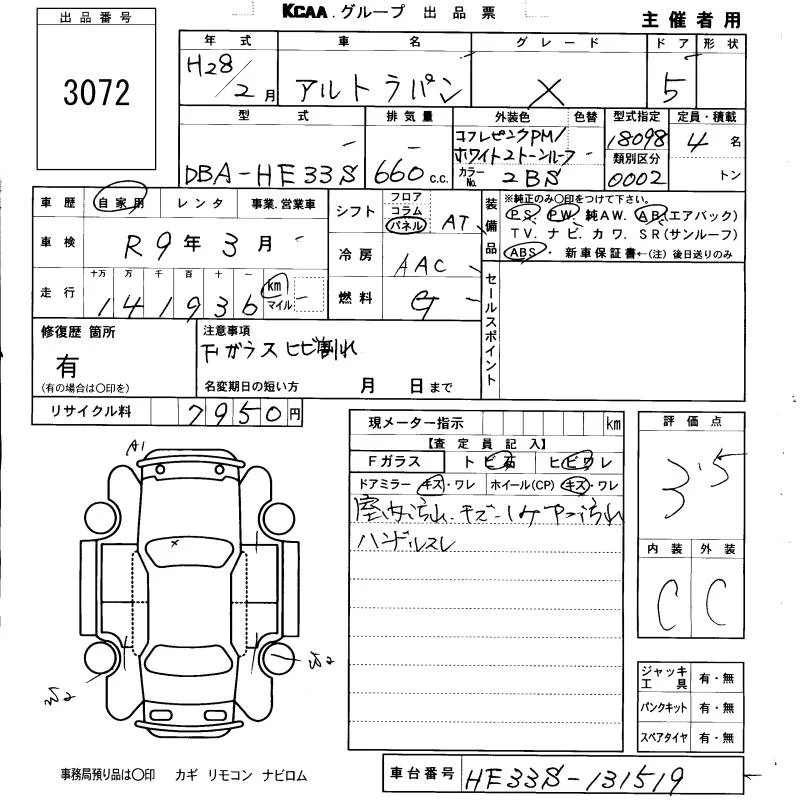 KCAA.グループ 出品票
主催者用
出品番号
3072
年式 車名 グレード ドア 形状
H28/2月 アルトラパン X 5
型式 排気量 外装色 色替 型式指定 定員・積載
DBA-HE33S 660c.c. コフレピンクPM/ 18098 4名
ホワイト2トーンルーフ 類別区分
カラーNo. 2BS 0002 トン
車歴 自家用 レンタ 事業.営業車
車検 R9年3月
十万 万 千 百 十 一
走行 141936 km マイル
シフト フロア コラム パネル AT
冷房 AAC
燃料 G
装備品
※純正のみ〇印をつけて下さい。
PS. PW. 純AW. AB(エアバック)
TV. ナビ. カワ. SR(サンルーフ)
ABS・ 新車保証書←(注) 後日送りのみ
セールスポイント
修復歴 箇所
有
(有の場合は〇印を)
注意事項
Fガラスヒビ割れ
名変期日の短い方 月 日まで
リサイクル料 7950円
現メーター指示 km
【査定員記入】
Fガラス トビ石 ヒビワレ
ドアミラー キズ・ワレ ホイール(CP) キズ・ワレ
室内汚れ、キズ
ハンドルスレ
評価点
3.5
内装 外装
C C
A1
ジャッキ工具 有・無
パンクキット 有・無
スペアタイヤ 有・無
事務局預り品は〇印 カギ リモコン ナビロム
車台番号 HE33S-131519